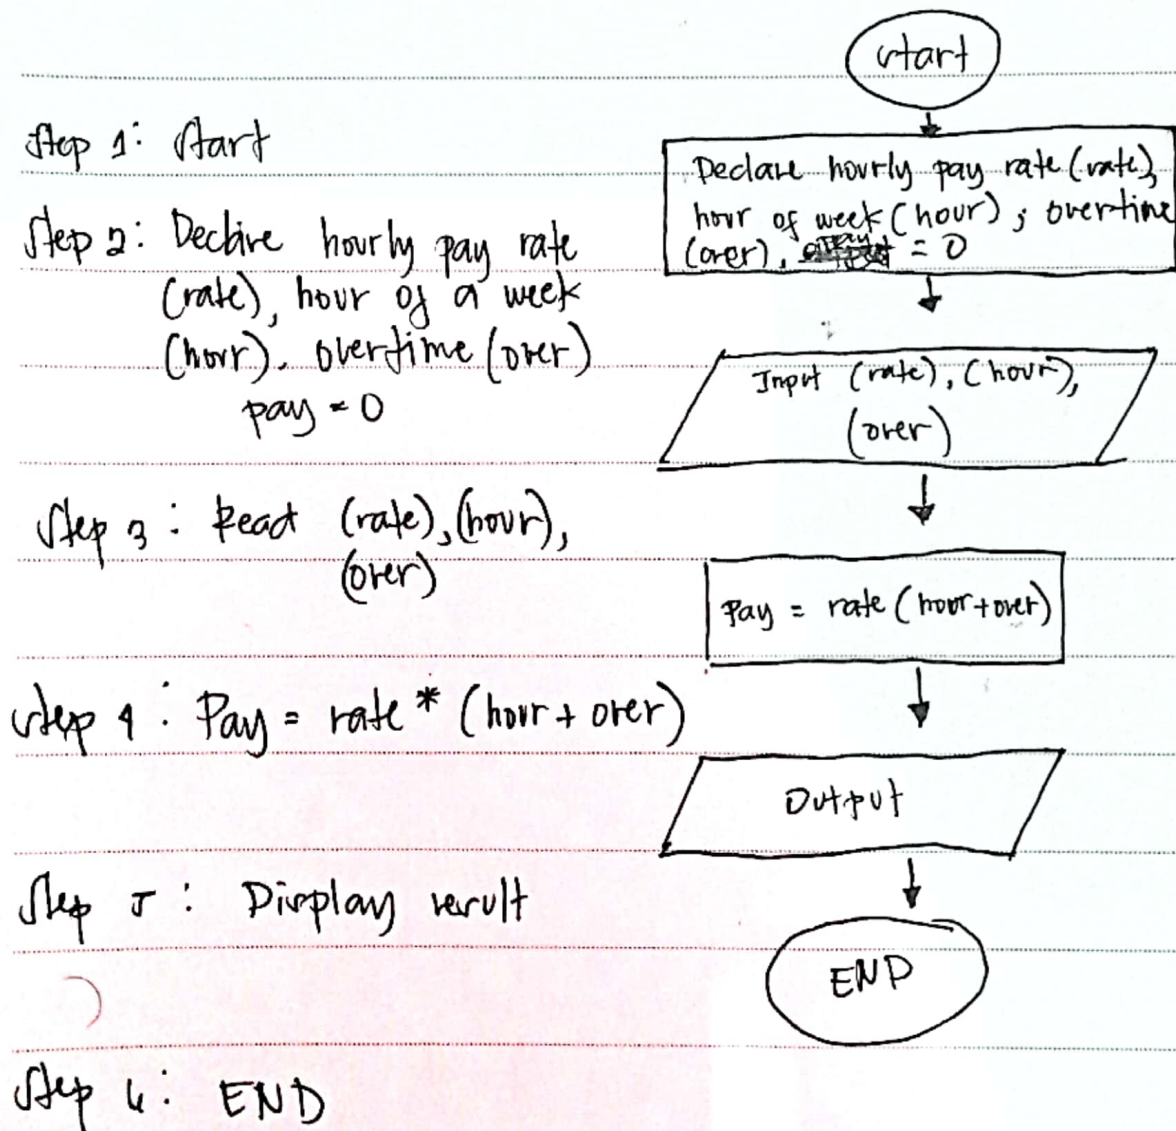 Step 1: Start
Step 2: Declare hourly pay rate
(rate), hour of a week
(hour), overtime (over)
pay = 0
Step 3: Read (rate), (hour),
(over)
Step 4: Pay = rate * (hour + over)
Step 5: Display result
Step 6: END
start
Declare hourly pay rate (rate),
hour of week (hour), overtime
(over), = 0
Input (rate), (hour),
(over)
Pay = rate (hour+over)
Output
END